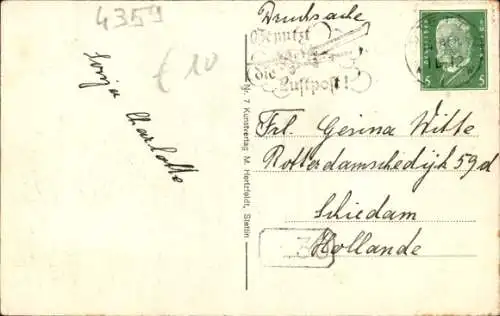 4359
€ 10
Sonja Charlotte
Drucksache
Benutzt
die
Luftpost!
5 5
Nr. 7 Kunstverlag M. Hertzfeldt, Stettin
Frl. Gerina Witte
Rotterdamschedijk 59d
Schiedam
Hollande